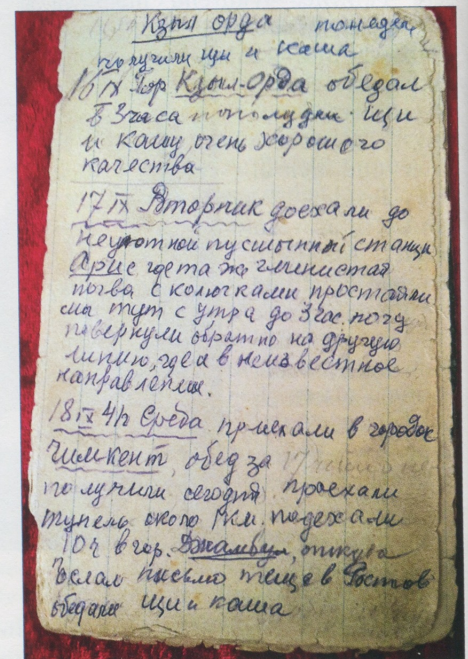 Кзыл орда понедел
получили щи и каша
16 IX Гор Кзыл-Орда обедал
в 3 часа пополудни щи
и кашу очень хорошого
качества
17 IX Вторник доехали до
неуютной пустынной станци
Арис где та же глинистая
почва с колючками простояли
мы тут с утра до 3 час. ночи
повернули обратно на другую
линию, едем в неизвестное
направление.
18 IX 4ч Среда приехали в городок
Чимкент, обед за 17 число не
получили сегодня проехали
тунель около 1 км. подехали
10 ч в гор. Джамбул, откуда
послал письмо теще в Ростов
обедали щи и каша